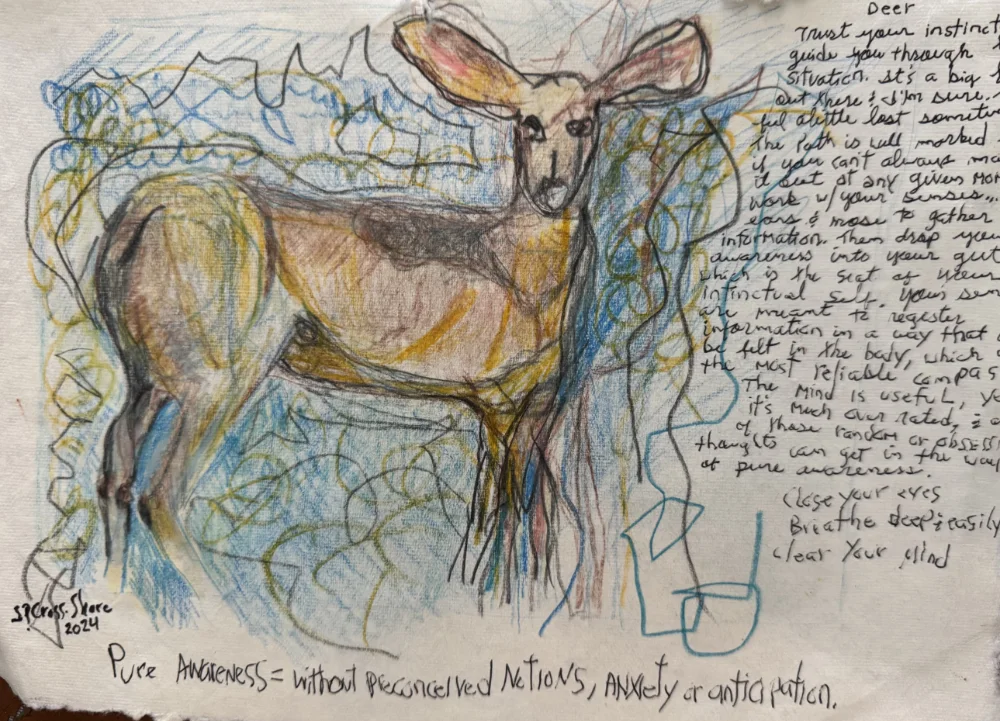 Deer
Trust your instinct
guide you through
situation. It's a big
out there & I'm sure
ful alittle lost sometim
The Path is well marked
if you can't always ma
it out at any given mom
work w/your senses...
ears & nose to gather
information. Then drop your
awareness into your gut
which is the seat of your
instinctual self. Your sen
are meant to register
information in a way that
be felt in the body, which
the most reliable compas
The Mind is useful, ye
it's much over rated, & a
of those random or obsess
thoughts can get in the way
of pure awareness.
Close your eyes
Breathe deep & easily
clear Your Mind
Cross-Shore
2024
Pure Awareness = without preconceived Notions, Anxiety or anticipation.